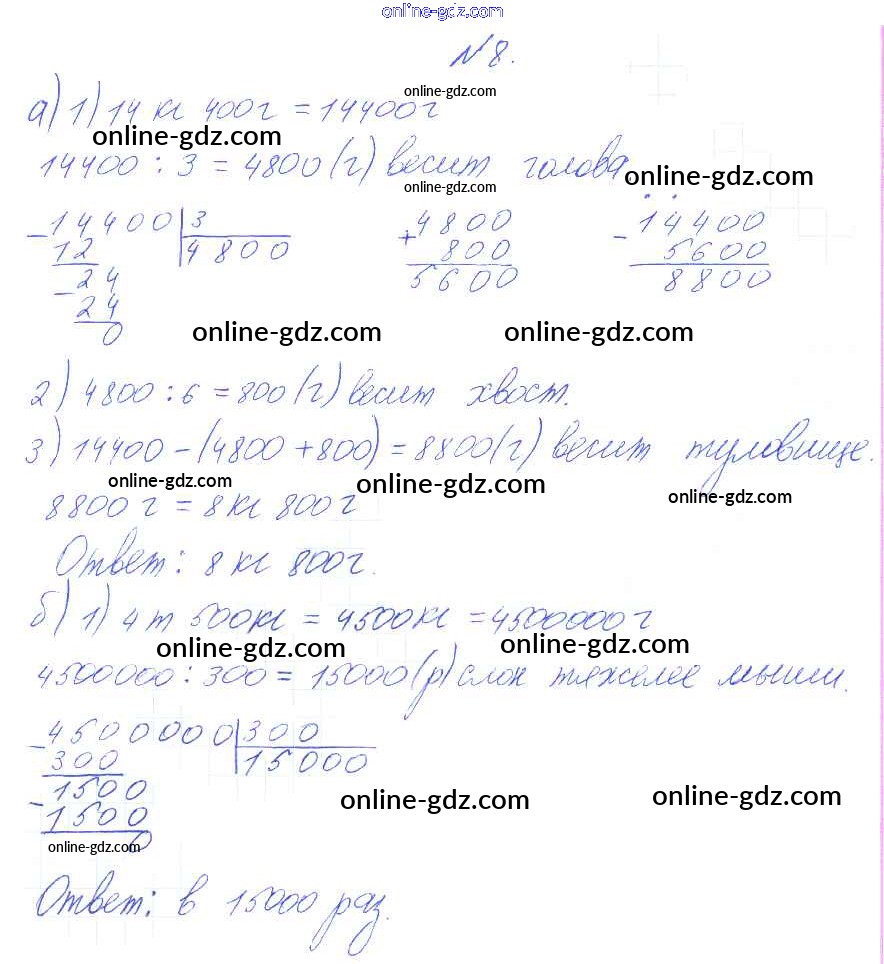 online-gdz.com
№8.
online-gdz.com
а) 1) 14 кг 400г = 14400г
online-gdz.com
14400 : 3 = 4800 (г) весит голова
online-gdz.com
online-gdz.com
- 14400 | 3
12 | 4800
- 24
24
0
+ 4800
800
5600
- 14400
5600
8800
online-gdz.com
online-gdz.com
2) 4800 : 6 = 800 (г) весит хвост.
3) 14400 - (4800 + 800) = 8800 (г) весит туловище.
online-gdz.com
online-gdz.com
online-gdz.com
8800 г = 8 кг 800 г
Ответ: 8 кг 800г.
б) 1) 4 т 500кг = 4500кг = 4500000г
online-gdz.com
online-gdz.com
4500000 : 300 = 15000 (р) слон тяжелее мыши.
- 4500000 | 300
300 | 15000
- 1500
1500
0
online-gdz.com
online-gdz.com
online-gdz.com
Ответ: в 15000 раз.